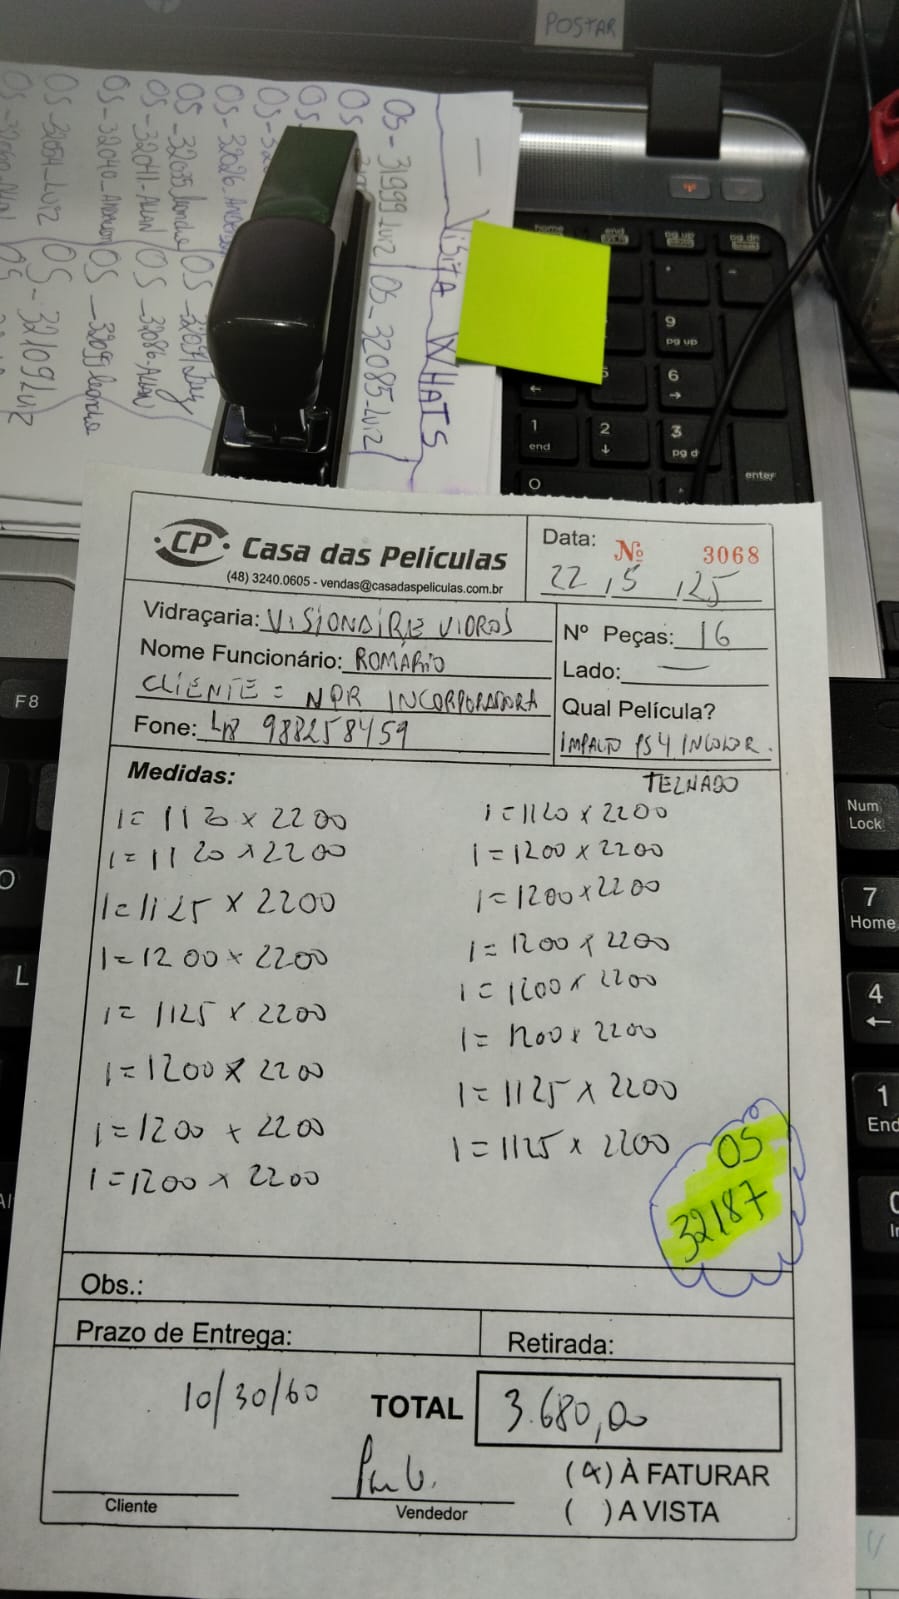 POSTAR
VISITA WHATS
OS-31999 LUIZ OS-32085-LUIZ
OS
OS
OS-32
OS-32026-
OS-32035 OS-3209
OS-32041-ALLAN OS-32086-ALLAN
OS-32040- OS-32099
OS-32054-LUIZ OS-32109 LUIZ
home
end
pg up
pg dn
9
pg up
6
1
end
2
3
pg d
enter
0
CP Casa das Películas
(48) 3240.0605 - vendas@casadaspeliculas.com.br
Data: Nº 3068
22 / 5 / 25
Vidraçaria: VISIONAIRE VIDROS
Nome Funcionário: ROMÁRIO
CLIENTE = NPR INCORPORADORA
Fone: 48 988258459
Nº Peças: 16
Lado: —
Qual Película?
IMPACTO PS4 INCOLOR.
TELHADO
Medidas:
1=1120 x 2200
1=1120 x 2200
1=1125 x 2200
1=1200 x 2200
1=1125 x 2200
1=1200 x 2200
1=1200 x 2200
1=1200 x 2200
1=1120 x 2200
1=1200 x 2200
1=1200 x 2200
1=1200 x 2200
1=1200 x 2200
1=1200 x 2200
1=1125 x 2200
1=1125 x 2200
OS
32187
Obs.:
Prazo de Entrega:
Retirada:
10/30/60
TOTAL 3.680,00
Cliente
Vendedor
(X) À FATURAR
( ) A VISTA
F8
L
Num
Lock
7
Home
4
1
End